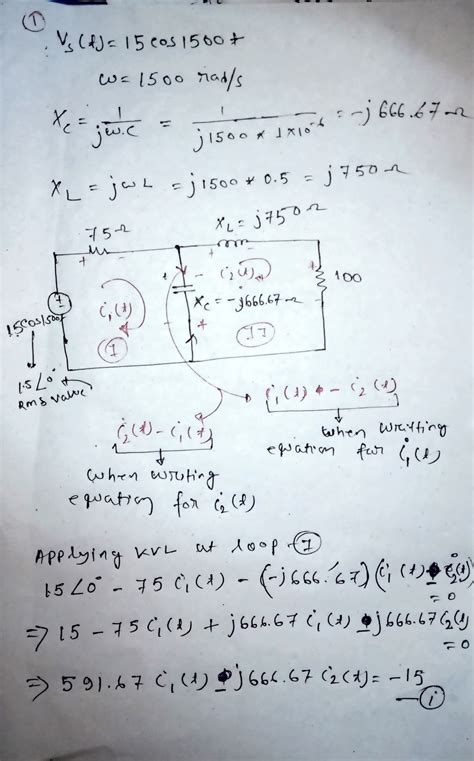 ①
∴ Vs(t) = 15 cos 1500t
ω = 1500 rad/s
Xc = 1/jω.C = 1/j1500 * 1×10⁻⁶ = -j666.67Ω
XL = jωL = j1500 * 0.5 = j750Ω
XL = j750Ω
75Ω
+ - + -
+ - i₂(t) + 100
Xc = -j666.67Ω
i₁(t)
15cos1500t
I
II
- + -
15∠0°
RMS value
i₁(t) - i₂(t)
i₂(t) - i₁(t)
when writing
equation for i₁(t)
when writing
equation for i₂(t)
Applying KVL at loop - I
15∠0° - 75 i₁(t) - (-j666.67)(i₁(t) - i₂(t))
= 0
⇒ 15 - 75 i₁(t) + j666.67 i₁(t) - j666.67 i₂(t)
= 0
⇒ 591.67 i₁(t) - j666.67 i₂(t) = -15
—(i)